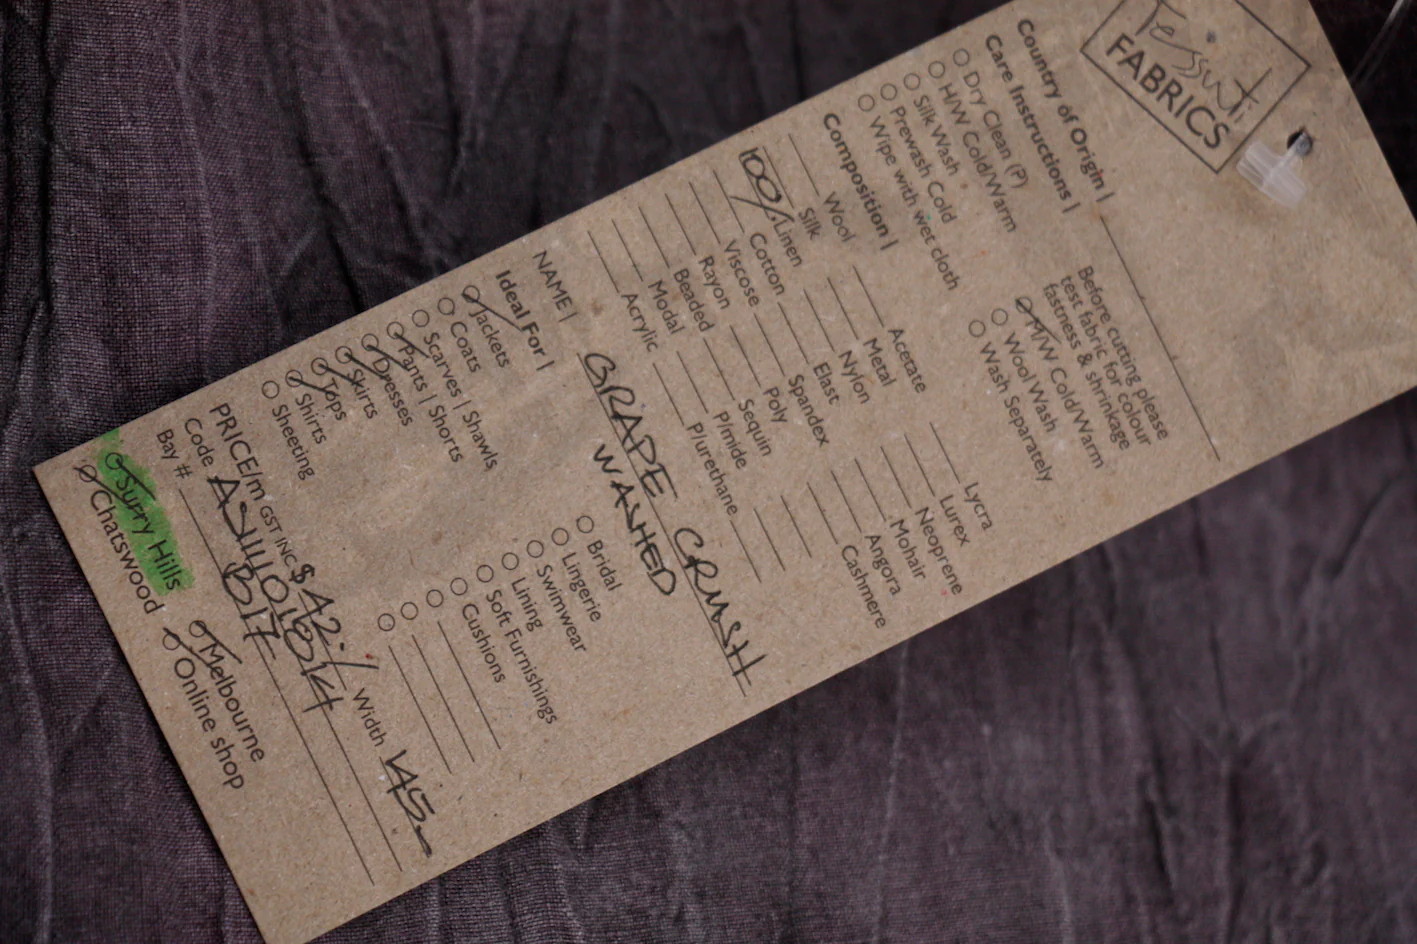 Tessuti
FABRICS
Country of Origin |
Care Instructions |
Dry Clean (P)
H/W Cold/Warm
Silk Wash
Prewash Cold
Wipe with wet cloth
Before cutting please
test fabric for colour
fastness & shrinkage
H/W Cold/Warm
Wool Wash
Wash Separately
Composition |
Wool
Silk
100% Linen
Cotton
Viscose
Rayon
Beaded
Modal
Acrylic
Acetate
Metal
Nylon
Elast
Spandex
Poly
Sequin
P/mide
P/urethane
Lycra
Lurex
Neoprene
Mohair
Angora
Cashmere
NAME | GRAPE CRUSH
WASHED
Ideal For |
Jackets
Coats
Scarves | Shawls
Pants | Shorts
Dresses
Skirts
Tops
Shirts
Sheeting
Bridal
Lingerie
Swimwear
Lining
Soft Furnishings
Cushions
PRICE/m GST INC $42.- Width 145-
Code
Bay # B17
Surry Hills
Melbourne
Chatswood
Online shop